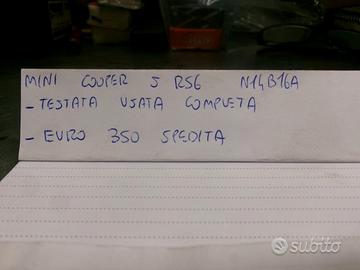 MINI COOPER S R56 N14B16A
- TESTATA USATA COMPLETA
- EURO 350 SPEDITA
subito